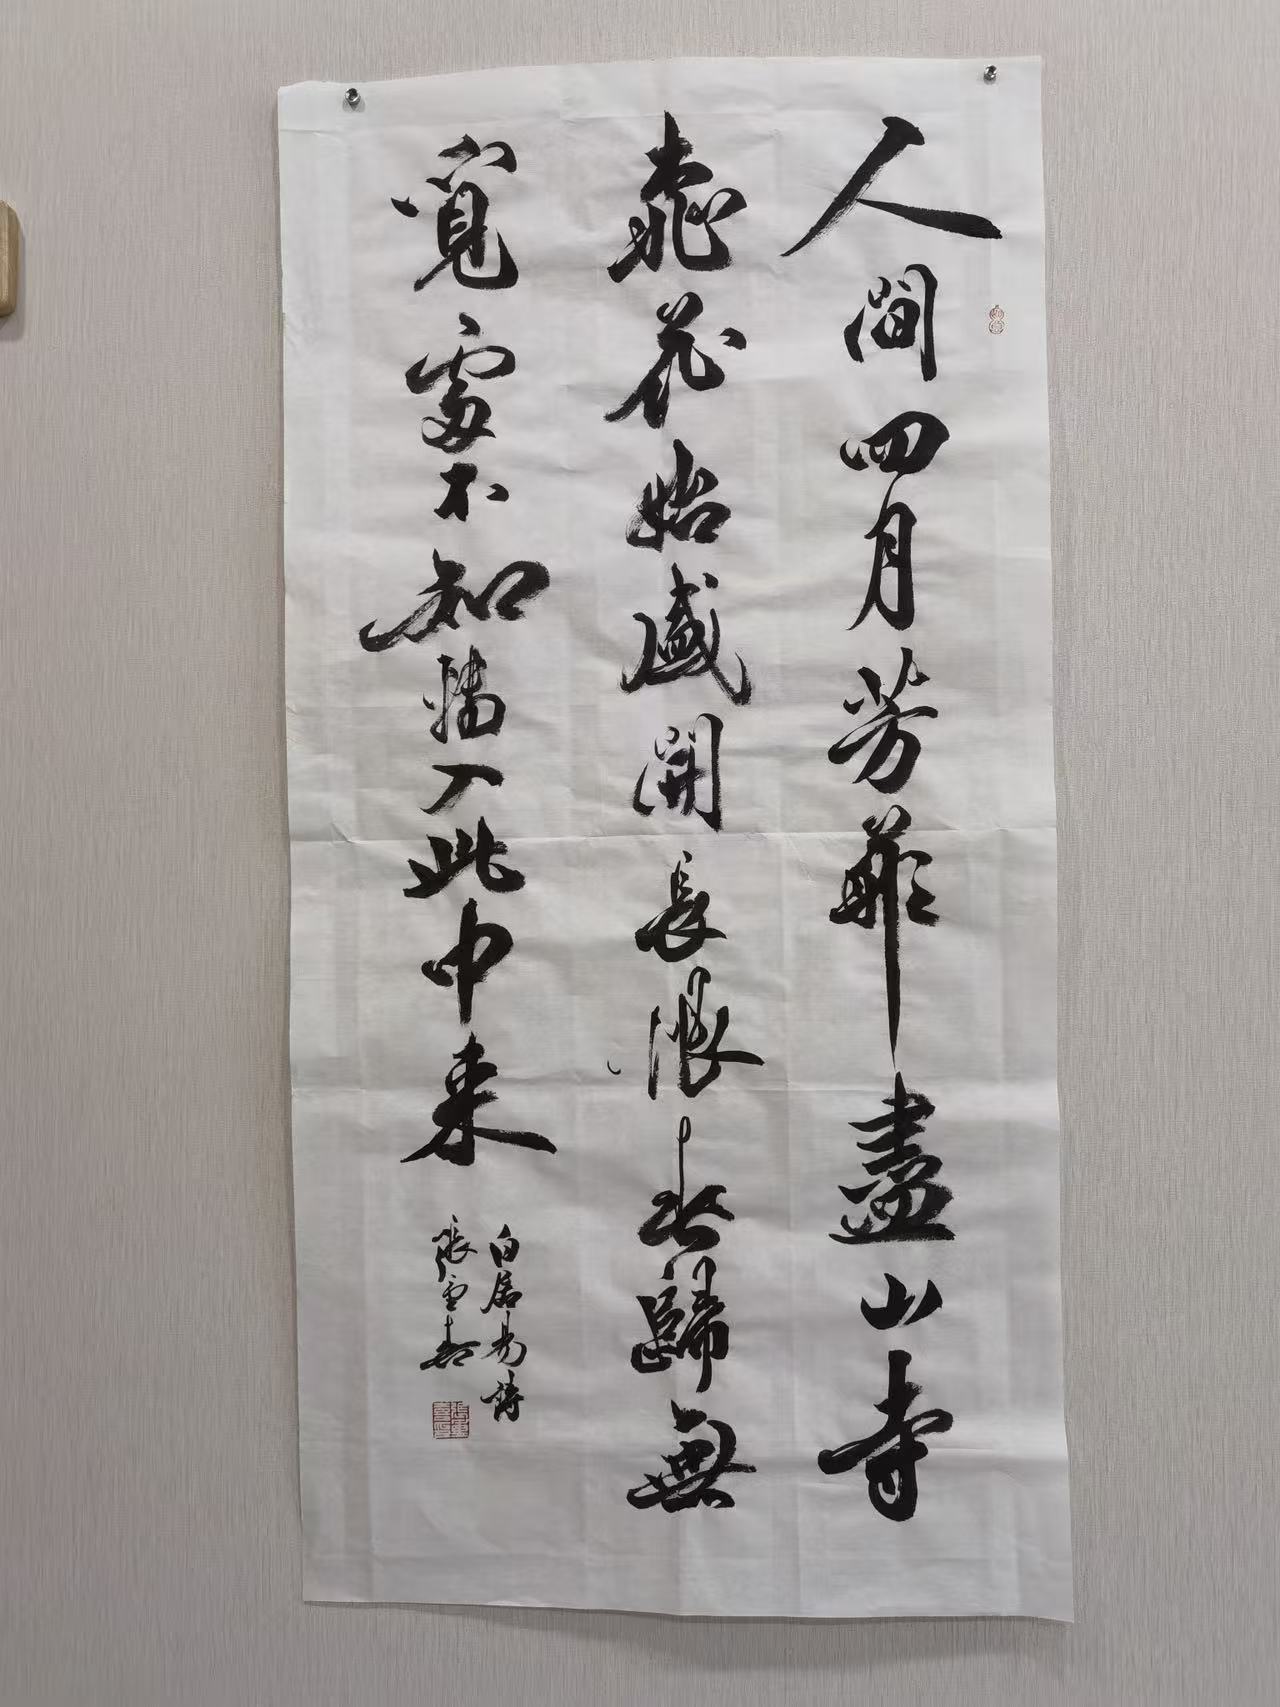 人間四月芳菲盡山寺
桃花始盛開長恨春歸無
覓處不知轉入此中来
白居易詩
張